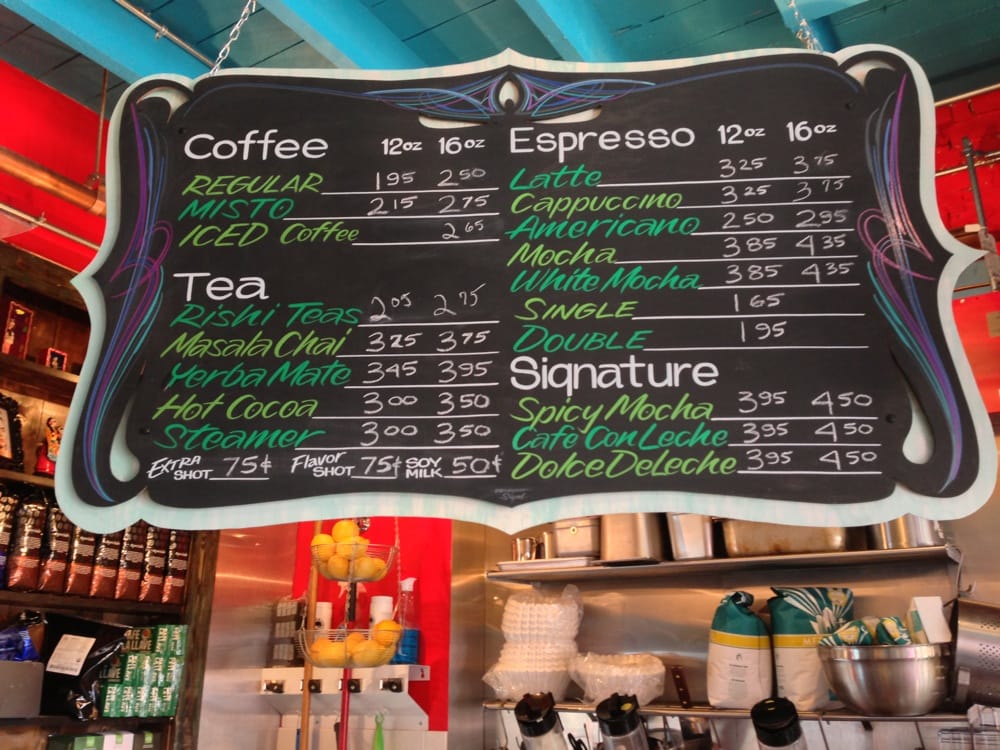 Coffee 12oz 16oz
REGULAR 1.95 2.50
MISTO 2.15 2.75
ICED Coffee 2.65
Tea
Rishi Teas 2.05 2.75
Masala Chai 3.25 3.75
Yerba Mate 3.45 3.95
Hot Cocoa 3.00 3.50
Steamer 3.00 3.50
EXTRA SHOT 75¢ Flavor SHOT 75¢ SOY MILK 50¢
Espresso 12oz 16oz
Latte 3.25 3.75
Cappuccino 3.25 3.75
Americano 2.50 2.95
Mocha 3.85 4.35
White Mocha 3.85 4.35
SINGLE 1.65
DOUBLE 1.95
Signature
Spicy Mocha 3.95 4.50
Café Con Leche 3.95 4.50
Dolce De Leche 3.95 4.50